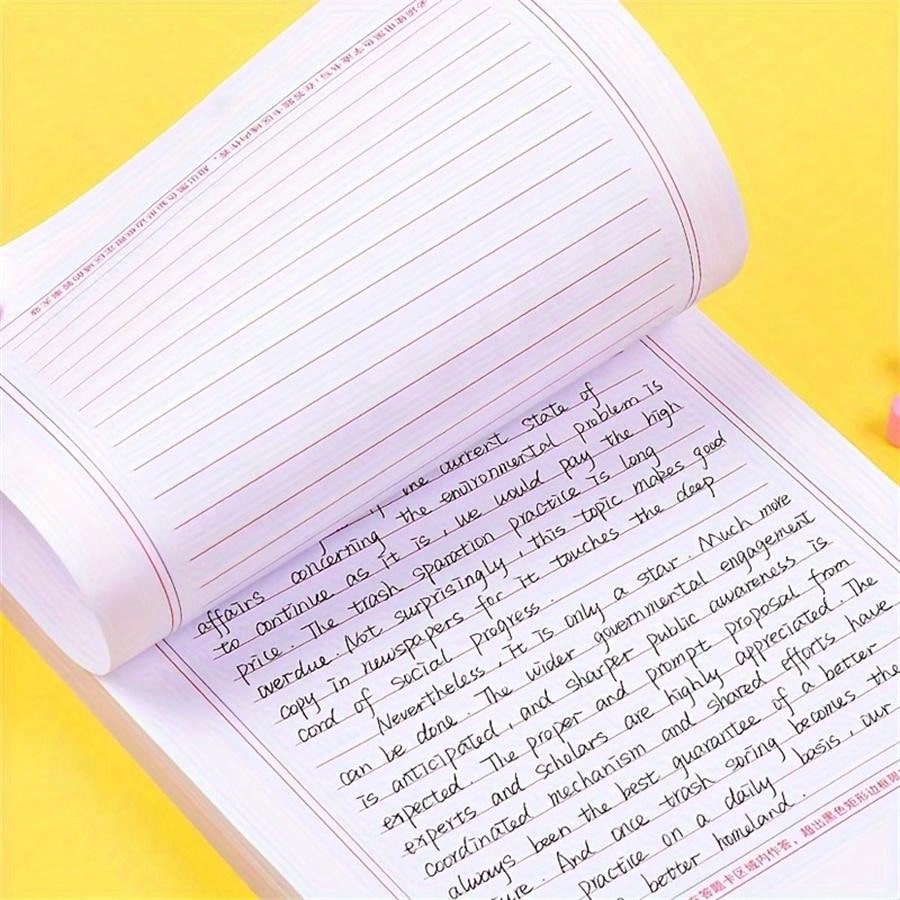 在答题卡区域内作答,超出黑色矩形边框限定区域的答案无效
if the current state of
affairs concerning the environmental problem is
to continue as it is , we would pay the high
price . The trash sparation practice is long
overdue. Not surprisingly , this topic makes good
copy in newspapers for it touches the deep
cord of social progress .
Nevertheless , it is only a star . Much more
can be done . The wider governmental engagement
is anticipated , and sharper public awareness is
expected. The proper and prompt proposal from
experts and scholars are highly appreciated. The
coordinated mechanism and shared efforts have
always been the best guarantee of a better
ture. And once trash soring becomes the
practice on a daily basis , our
better homeland .
在答题卡区域内作答,超出黑色矩形边框